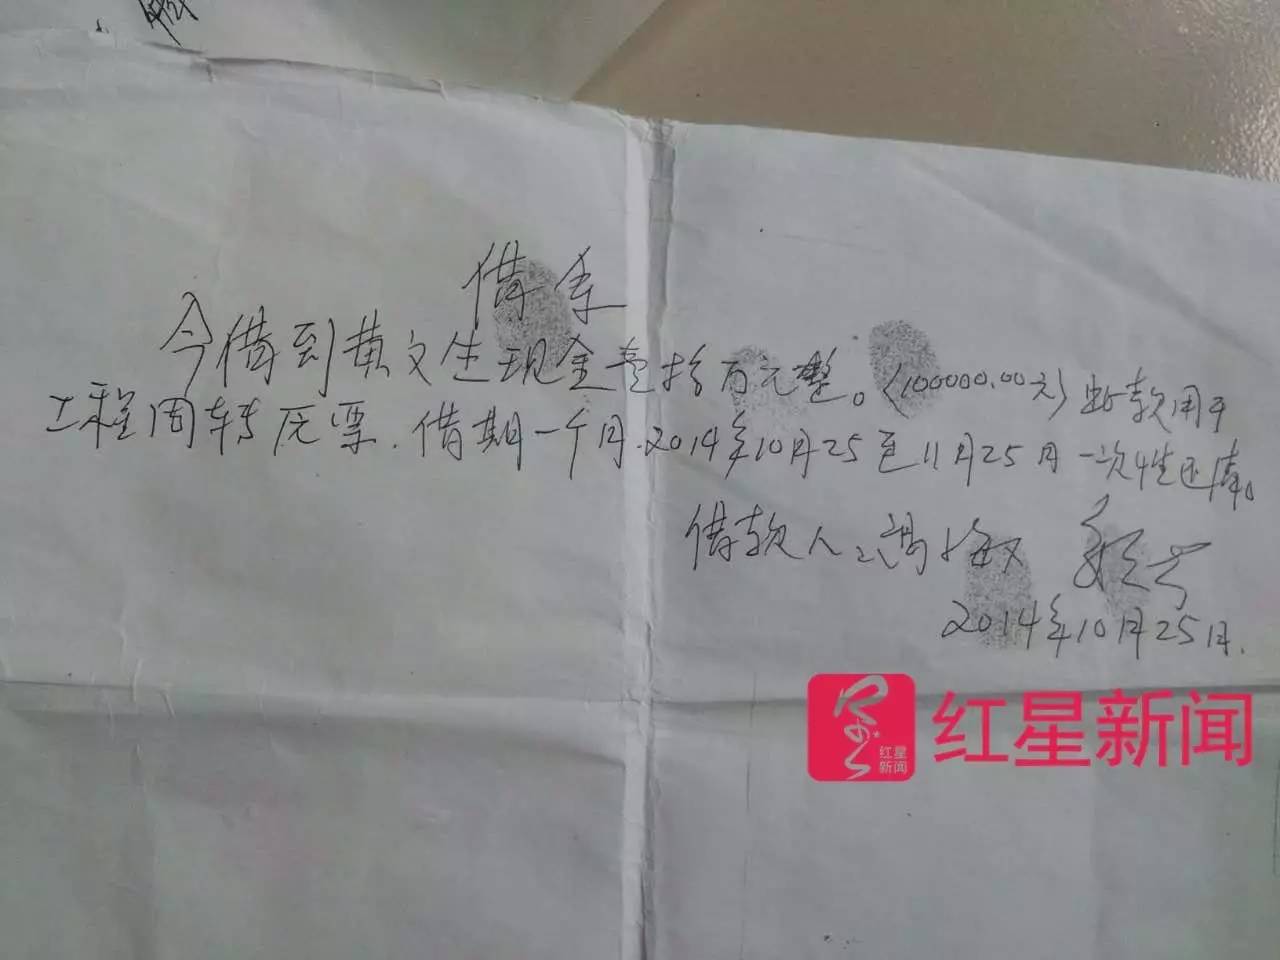 借条
今借到黄文生现金壹拾万元整。(100000.00元)此款用于
工程周转 借期一个月.2014年10月25至11月25日一次性还清。
借款人：
2014年10月25日.
红星新闻
红星
新闻